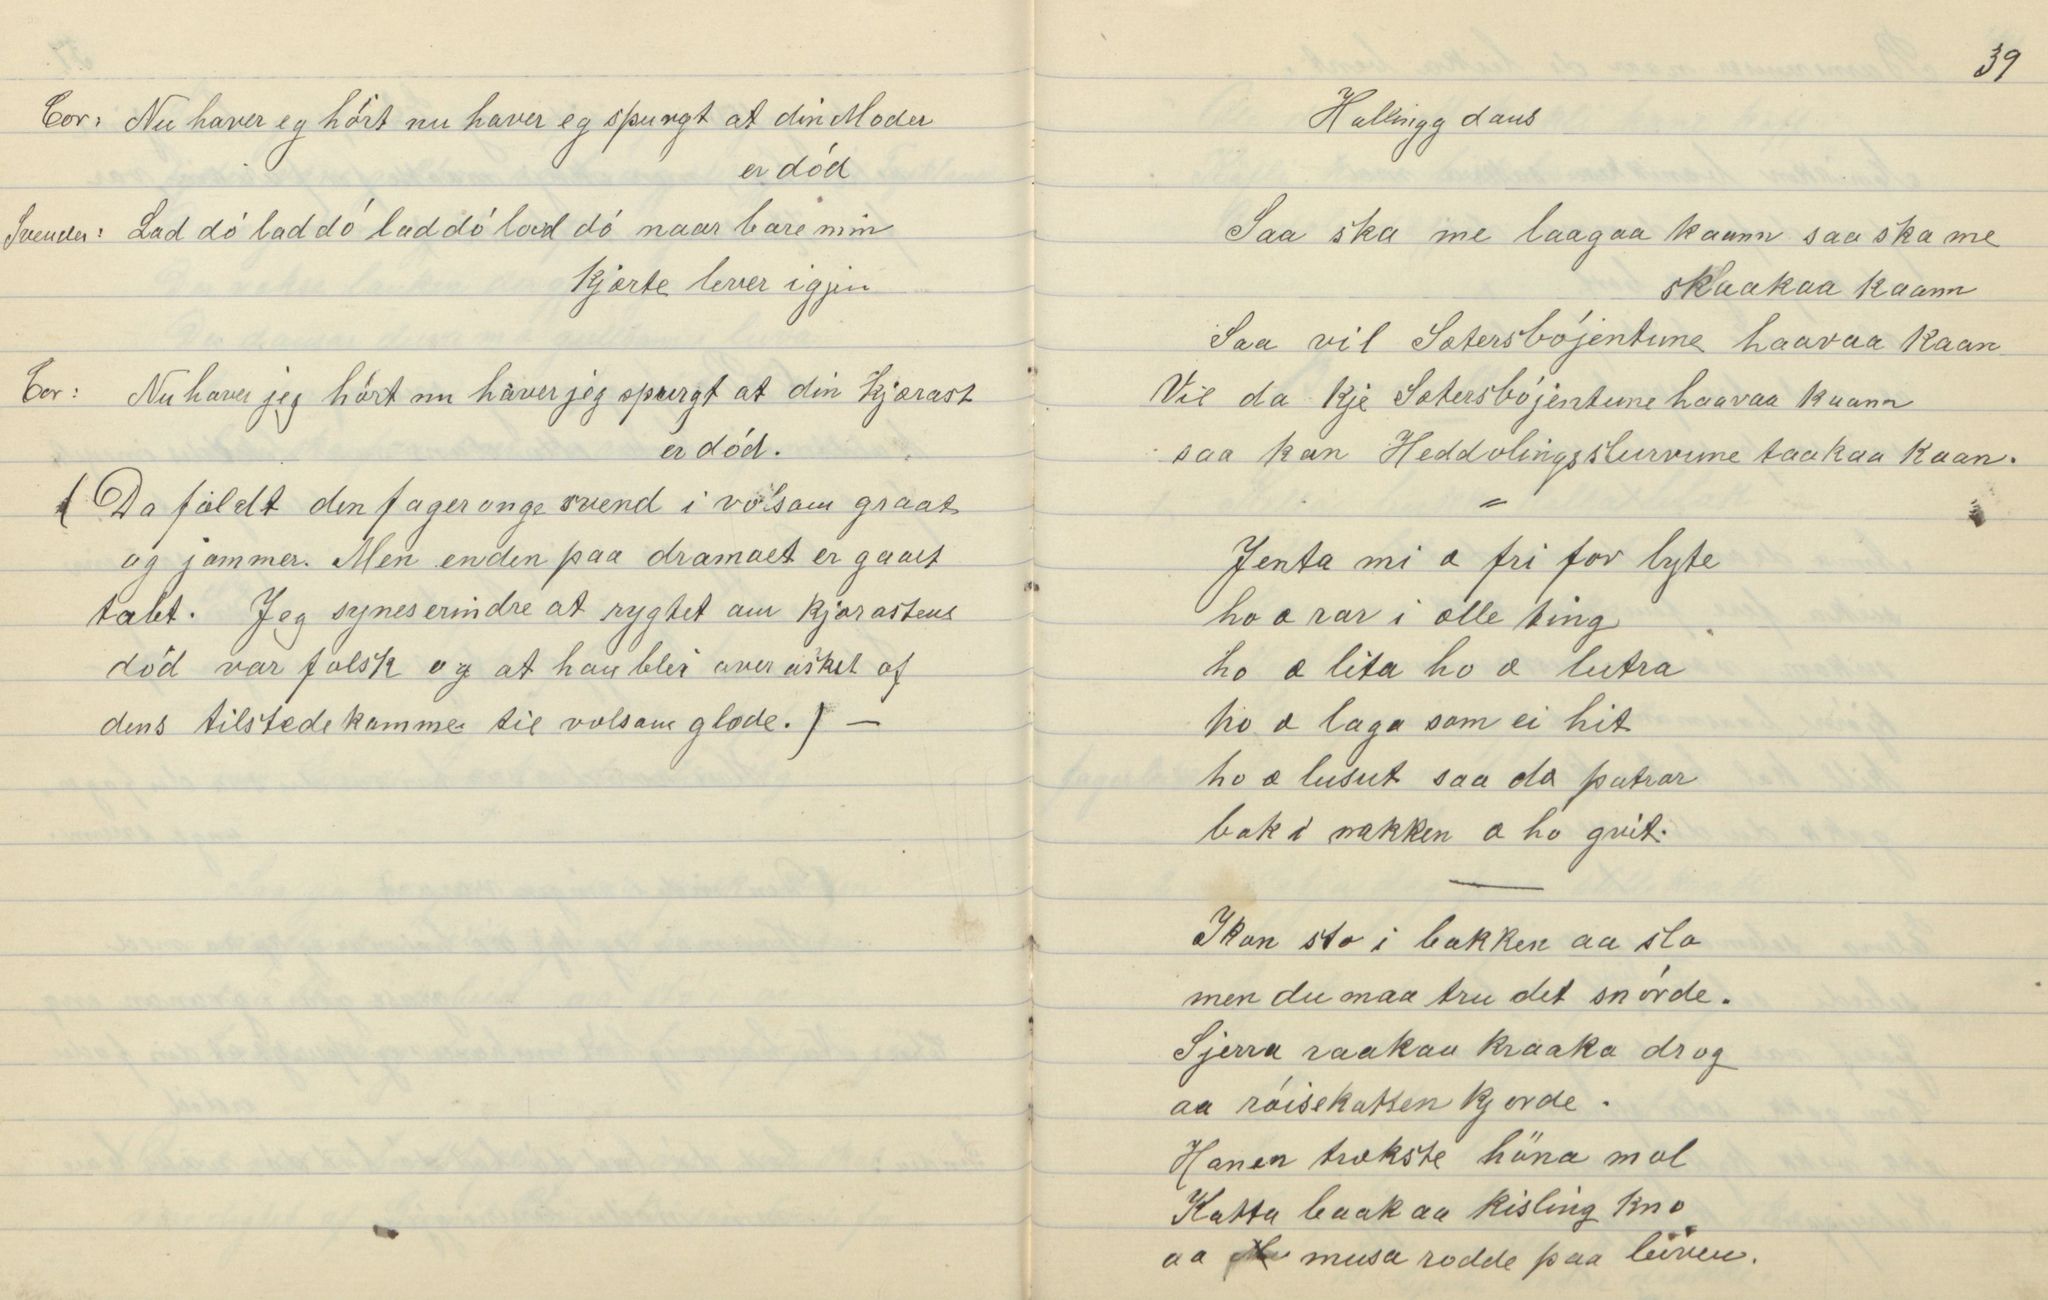 Cor: Nu haver eg hört nu haver eg spurgt at din Moder
er död
Svenden: Lad dö lad dö lad dö lad dö naar bare min
kjærte lever igjen
Cor: Nu haver jeg hört nu haver jeg spurgt at din Kjærast
er död.
( Da faldt den fager unge svend i volsom graat
og jammer. Men enden paa dramaet er gaaet
tabt. Jeg synes erindre at rygtet om kjærastens
död var falsk og at han blei overasket af
dens tilstedekomme til volsom glæde. ) —
39
Hallingg dans
Saa ska me laagaa kaann saa ska me
skaakaa kaann
Saa vil Sætersböjentune haavaa kaan
Vil da kje Sætersböjentune haavaa kaann
saa kan Heddolingsslurvune taakaa kaan.
Jenta mi æ fri for lyte
ho æ rar i alle ting
ho æ lita ho æ lutra
ho æ laga som ei hit
ho æ lusut saa dæ patrar
bak i nakken æ ho gvit.
Ikon sto i bakken aa slo
men du maa tru det snörde.
Sjerra raakaa kraaka drog
aa röisekatten kjorde.
Hanen trækste höna mol
Katta baakaa kisling kno
aa musa rodde paa leiven.